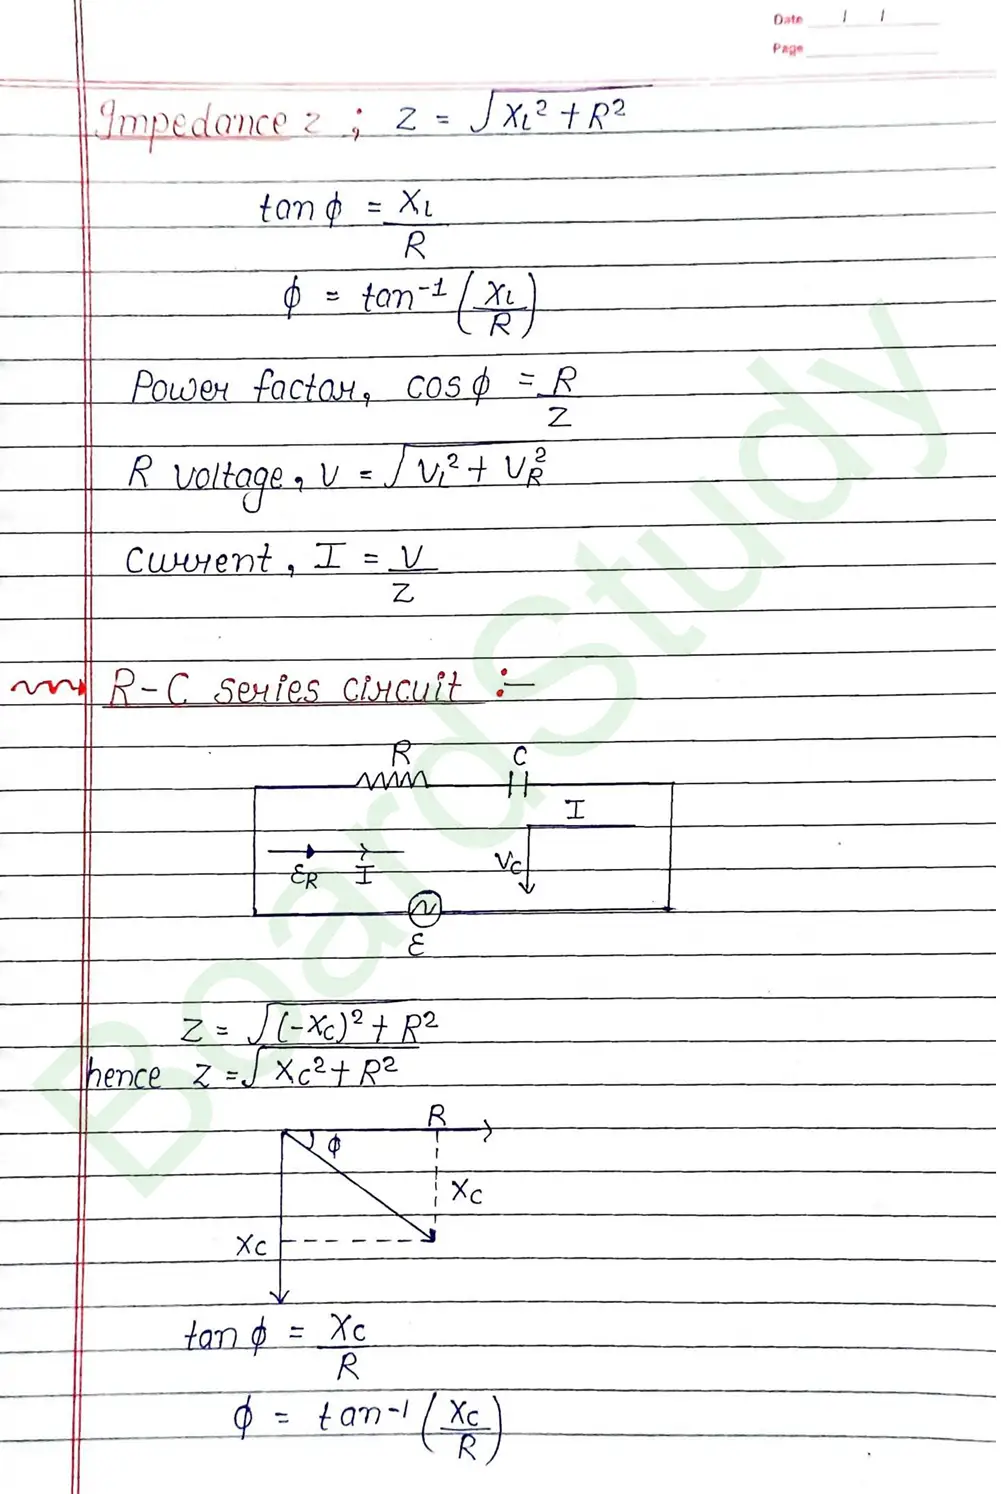 Date
Page
Impedance z ; Z = √XL² + R²
tan ϕ = XL/R
ϕ = tan⁻¹ (XL/R)
Power factor, cos ϕ = R/Z
R voltage, V = √VL² + VR²
Current, I = V/Z
R-C series circuit :-
R C
I
VC
εR I
ε
Z = √(-XC)² + R²
hence Z = √XC² + R²
R
ϕ
XC
XC
tan ϕ = XC/R
ϕ = tan-1 (XC/R)
BoardStudy